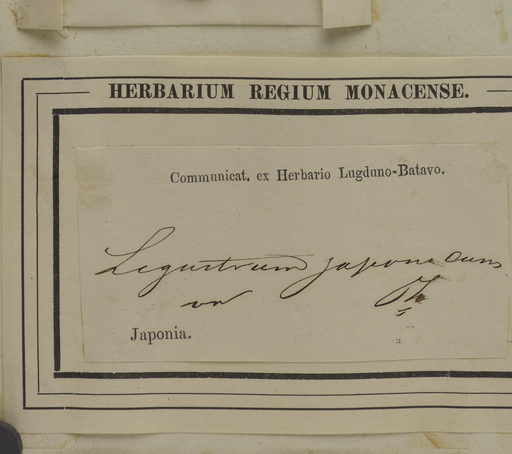 HERBARIUM REGIUM MONACENSE.
Communicat. ex Herbario Lugduno-Batavo.
Ligustrum japonicum
Th
Japonia.